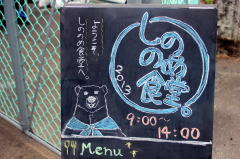 ようこそ、
しののめ食堂へ。
しの
のめ
食堂。
2013
9:00〜
14:00
Menu